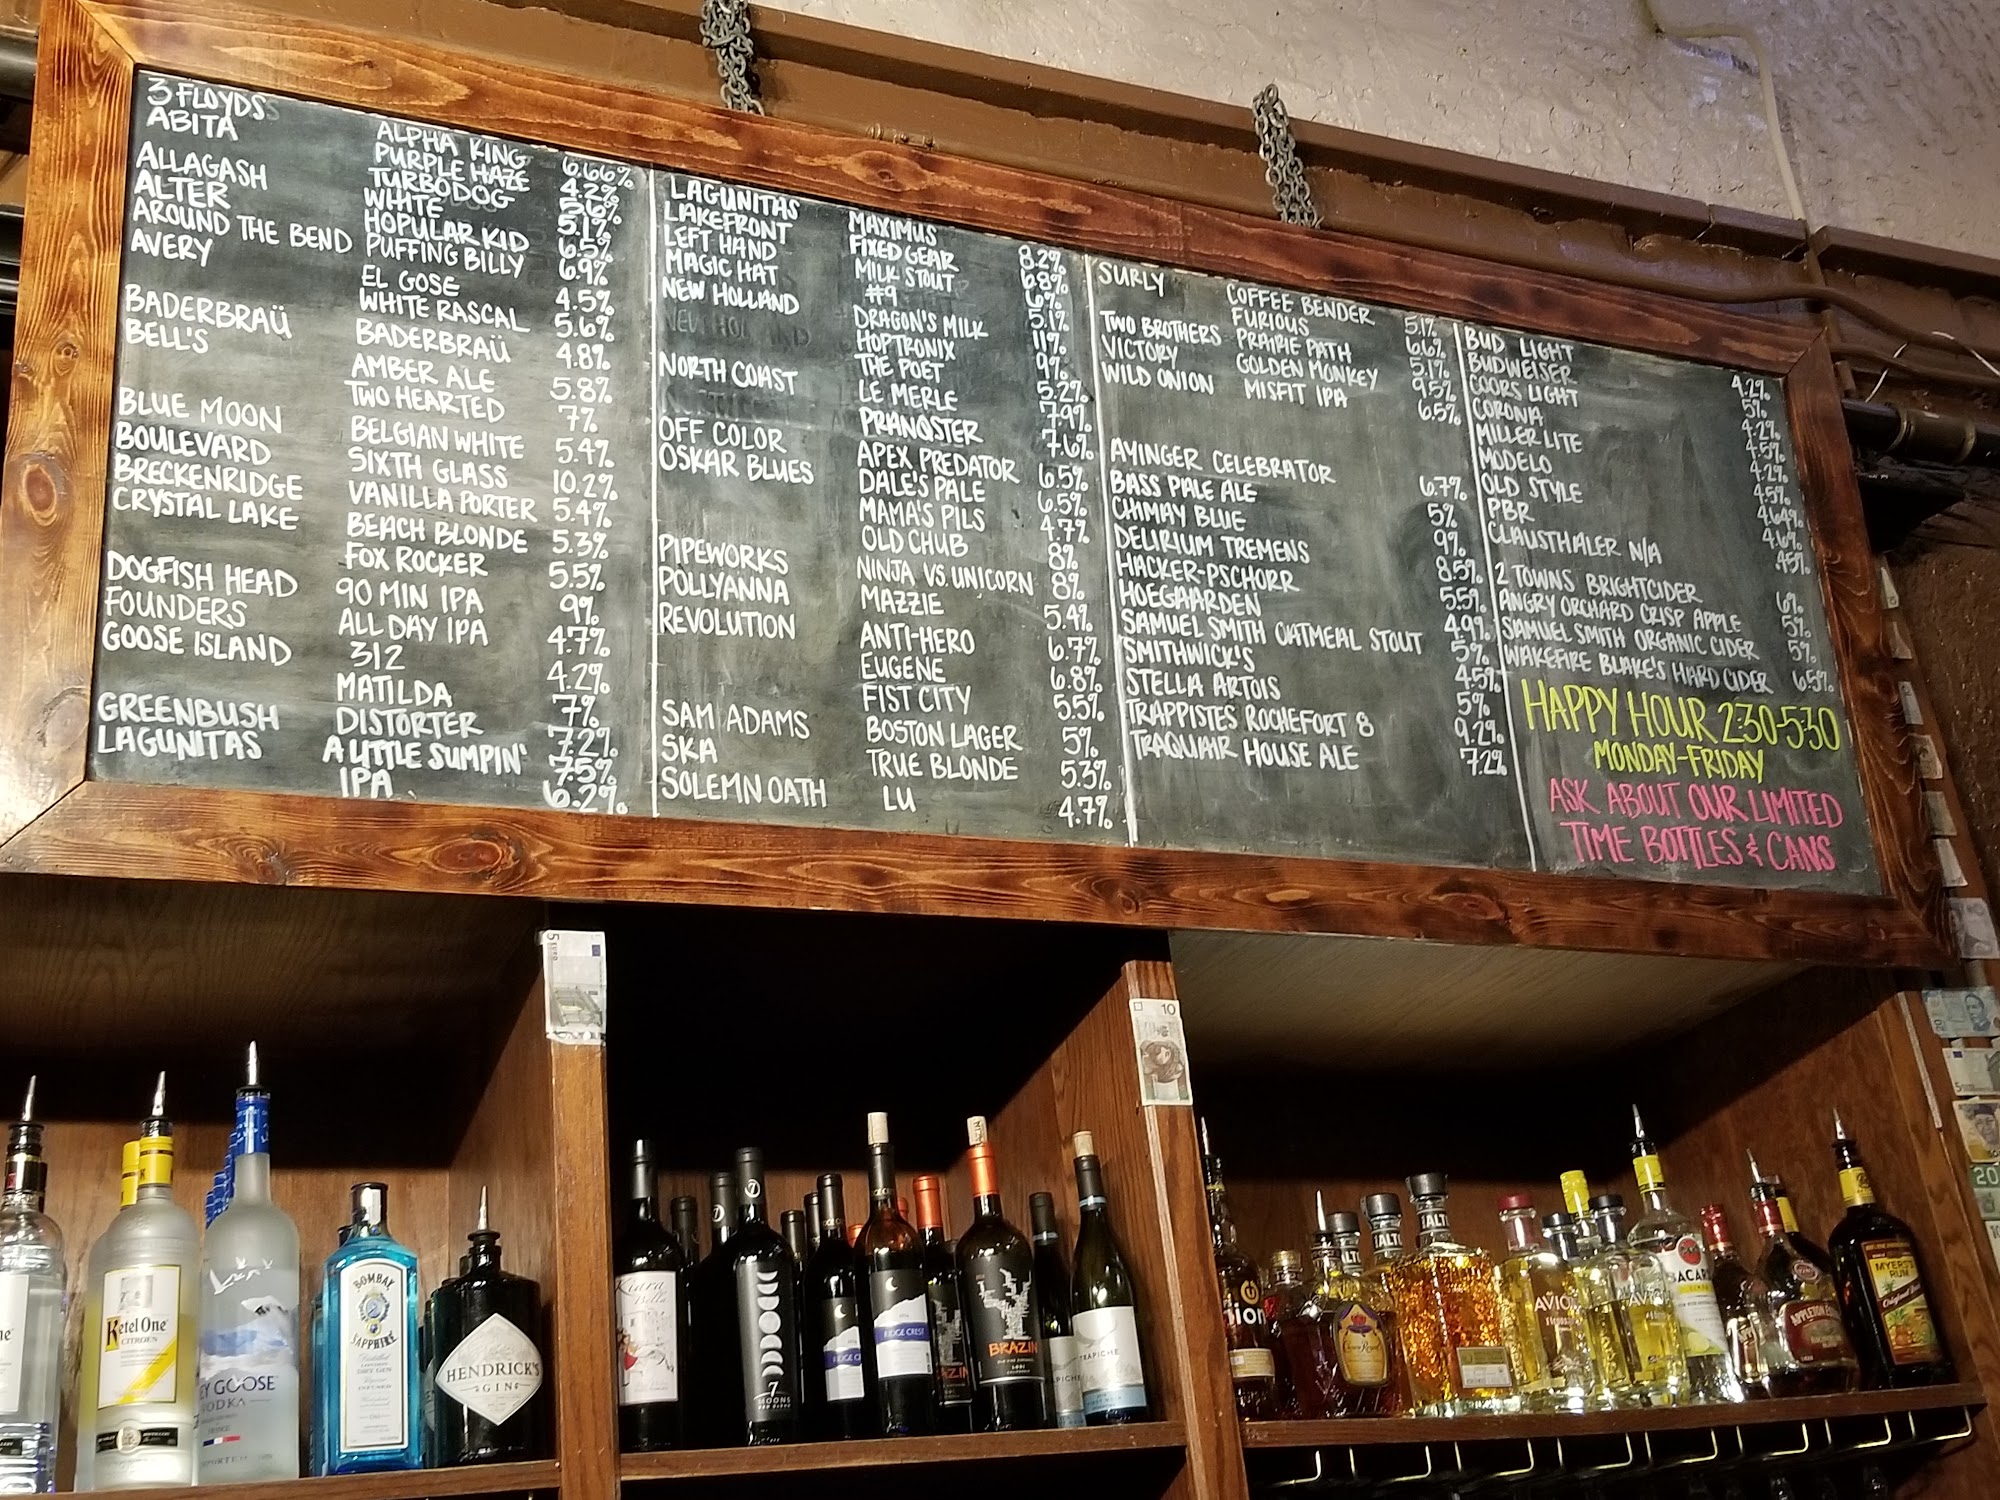 3 FLOYDS ALPHA KING 6.66%
ABITA PURPLE HAZE 4.2%
TURBODOG 5.6%
ALLAGASH WHITE 5.1%
ALTER HOPULAR KID 6.5%
AROUND THE BEND PUFFING BILLY 6.9%
AVERY EL GOSE 4.5%
WHITE RASCAL 5.6%
BADERBRAÜ BADERBRAÜ 4.8%
BELL'S AMBER ALE 5.8%
TWO HEARTED 7%
BLUE MOON BELGIAN WHITE 5.4%
BOULEVARD SIXTH GLASS 10.2%
BRECKENRIDGE VANILLA PORTER 5.4%
CRYSTAL LAKE BEACH BLONDE 5.3%
FOX ROCKER 5.5%
DOGFISH HEAD 90 MIN IPA 9%
FOUNDERS ALL DAY IPA 4.7%
GOOSE ISLAND 312 4.2%
MATILDA 7%
GREENBUSH DISTORTER 7.2%
LAGUNITAS A LITTLE SUMPIN' 7.5%
IPA 6.2%
LAGUNITAS MAXIMUS 8.2%
LAKEFRONT FIXED GEAR 6.8%
LEFT HAND MILK STOUT 6%
MAGIC HAT #9 5.1%
NEW HOLLAND DRAGON'S MILK 11%
HOPTRONIX 9%
THE POET 5.2%
NORTH COAST LE MERLE 7.9%
PRANQSTER 7.6%
OFF COLOR APEX PREDATOR 6.5%
OSKAR BLUES DALE'S PALE 6.5%
MAMA'S PILS 4.7%
OLD CHUB 8%
PIPEWORKS NINJA VS. UNICORN 8%
POLLYANNA MAZZIE 5.4%
REVOLUTION ANTI-HERO 6.7%
EUGENE 6.8%
FIST CITY 5.5%
SAM ADAMS BOSTON LAGER 5%
SKA TRUE BLONDE 5.3%
SOLEMN OATH LU 4.7%
SURLY COFFEE BENDER 5.1%
FURIOUS 6.6%
TWO BROTHERS PRAIRIE PATH 5.1%
VICTORY GOLDEN MONKEY 9.5%
WILD ONION MISFIT IPA 6.5%
AYINGER CELEBRATOR 6.7%
BASS PALE ALE 5%
CHIMAY BLUE 9%
DELIRIUM TREMENS 8.5%
HACKER-PSCHORR 5.5%
HOEGAARDEN 4.9%
SAMUEL SMITH OATMEAL STOUT 5%
SMITHWICK'S 4.5%
STELLA ARTOIS 5%
TRAPPISTES ROCHEFORT 8 9.2%
TRAQUAIR HOUSE ALE 7.2%
BUD LIGHT 4.2%
BUDWEISER 5%
COORS LIGHT 4.2%
CORONA 4.5%
MILLER LITE 4.2%
MODELO 4.5%
OLD STYLE 4.64%
PBR 4.6%
CLAUSTHALER N/A .45%
2 TOWNS BRIGHTCIDER 6%
ANGRY ORCHARD CRISP APPLE 5%
SAMUEL SMITH ORGANIC CIDER 5%
WAKEFIRE BLAKE'S HARD CIDER 6.5%
HAPPY HOUR 2:30-5:30
MONDAY-FRIDAY
ASK ABOUT OUR LIMITED
TIME BOTTLES & CANS
5 EURO
10
20
Ketel One
CITROEN
EY GOOSE
VODKA
BOMBAY
SAPPHIRE
HENDRICK'S
GIN
Kiara
Bella
7
MOONS
RIDGE CREST
BRAZIN
TRAPICHE
Crown Royal
AVION
BACARDI
APPLETON
MYERS'S
RUM
Original